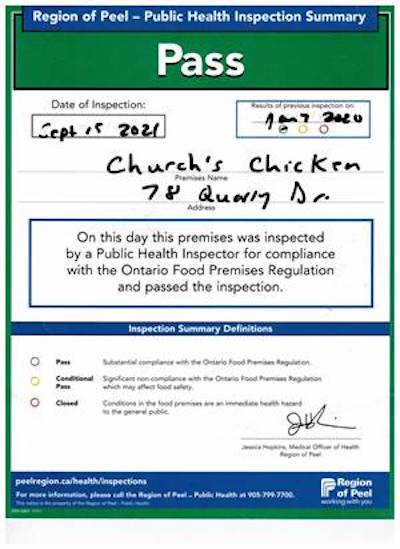 Region of Peel – Public Health Inspection Summary
Pass
Date of Inspection:
Sept 15 2021
Results of previous inspection on:
Jan 7 2020
Church's Chicken
Premises Name
78 Quarry Dr.
Address
On this day this premises was inspected
by a Public Health Inspector for compliance
with the Ontario Food Premises Regulation
and passed the inspection.
Inspection Summary Definitions
Pass Substantial compliance with the Ontario Food Premises Regulation.
Conditional Pass Significant non-compliance with the Ontario Food Premises Regulation
which may affect food safety.
Closed Conditions in the food premises are an immediate health hazard
to the general public.
Jessica Hopkins, Medical Officer of Health
Region of Peel
peelregion.ca/health/inspections
For more information, please call the Region of Peel – Public Health at 905-799-7700.
This notice is the property of the Region of Peel - Public Health
Region
of Peel
working with you